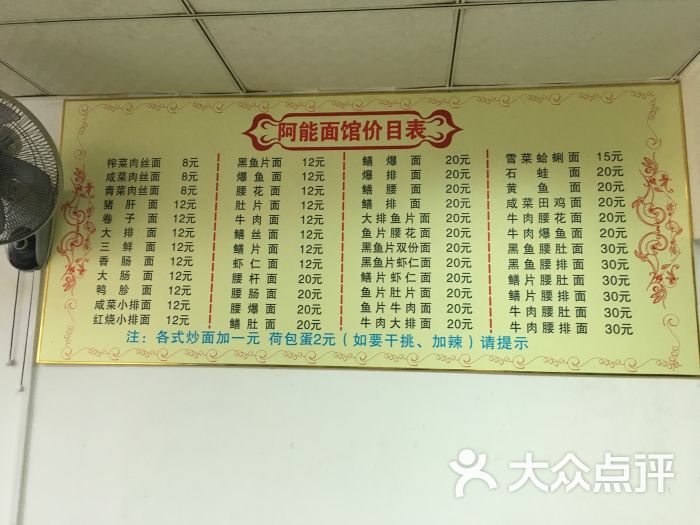 阿能面馆价目表
榨菜肉丝面 8元
咸菜肉丝面 8元
青菜肉丝面 8元
猪肝面 12元
卷子面 12元
大排面 12元
三鲜面 12元
香肠面 12元
大肠面 12元
鸭胗面 12元
咸菜小排面 12元
红烧小排面 12元
黑鱼片面 12元
爆鱼面 12元
腰花面 12元
肚片面 12元
牛肉面 12元
鳝丝面 12元
鳝片面 12元
虾仁面 12元
腰杆面 20元
腰肠面 20元
腰爆面 20元
鳝肚面 20元
鳝爆面 20元
爆排面 20元
鳝腰面 20元
鳝排面 20元
大排鱼片面 20元
鱼片腰花面 20元
黑鱼片双份面 20元
黑鱼片虾仁面 20元
鳝片虾仁面 20元
鱼片肚片面 20元
鱼片牛肉面 20元
牛肉大排面 20元
雪菜蛤蜊面 15元
石蛙面 20元
黄鱼面 20元
咸菜田鸡面 20元
牛肉腰花面 20元
牛肉爆鱼面 20元
黑鱼腰肚面 30元
黑鱼腰排面 30元
鳝片腰肚面 30元
鳝片腰排面 30元
牛肉腰肚面 30元
牛肉腰排面 30元
注：各式炒面加一元 荷包蛋2元（如要干挑、加辣）请提示
大众点评